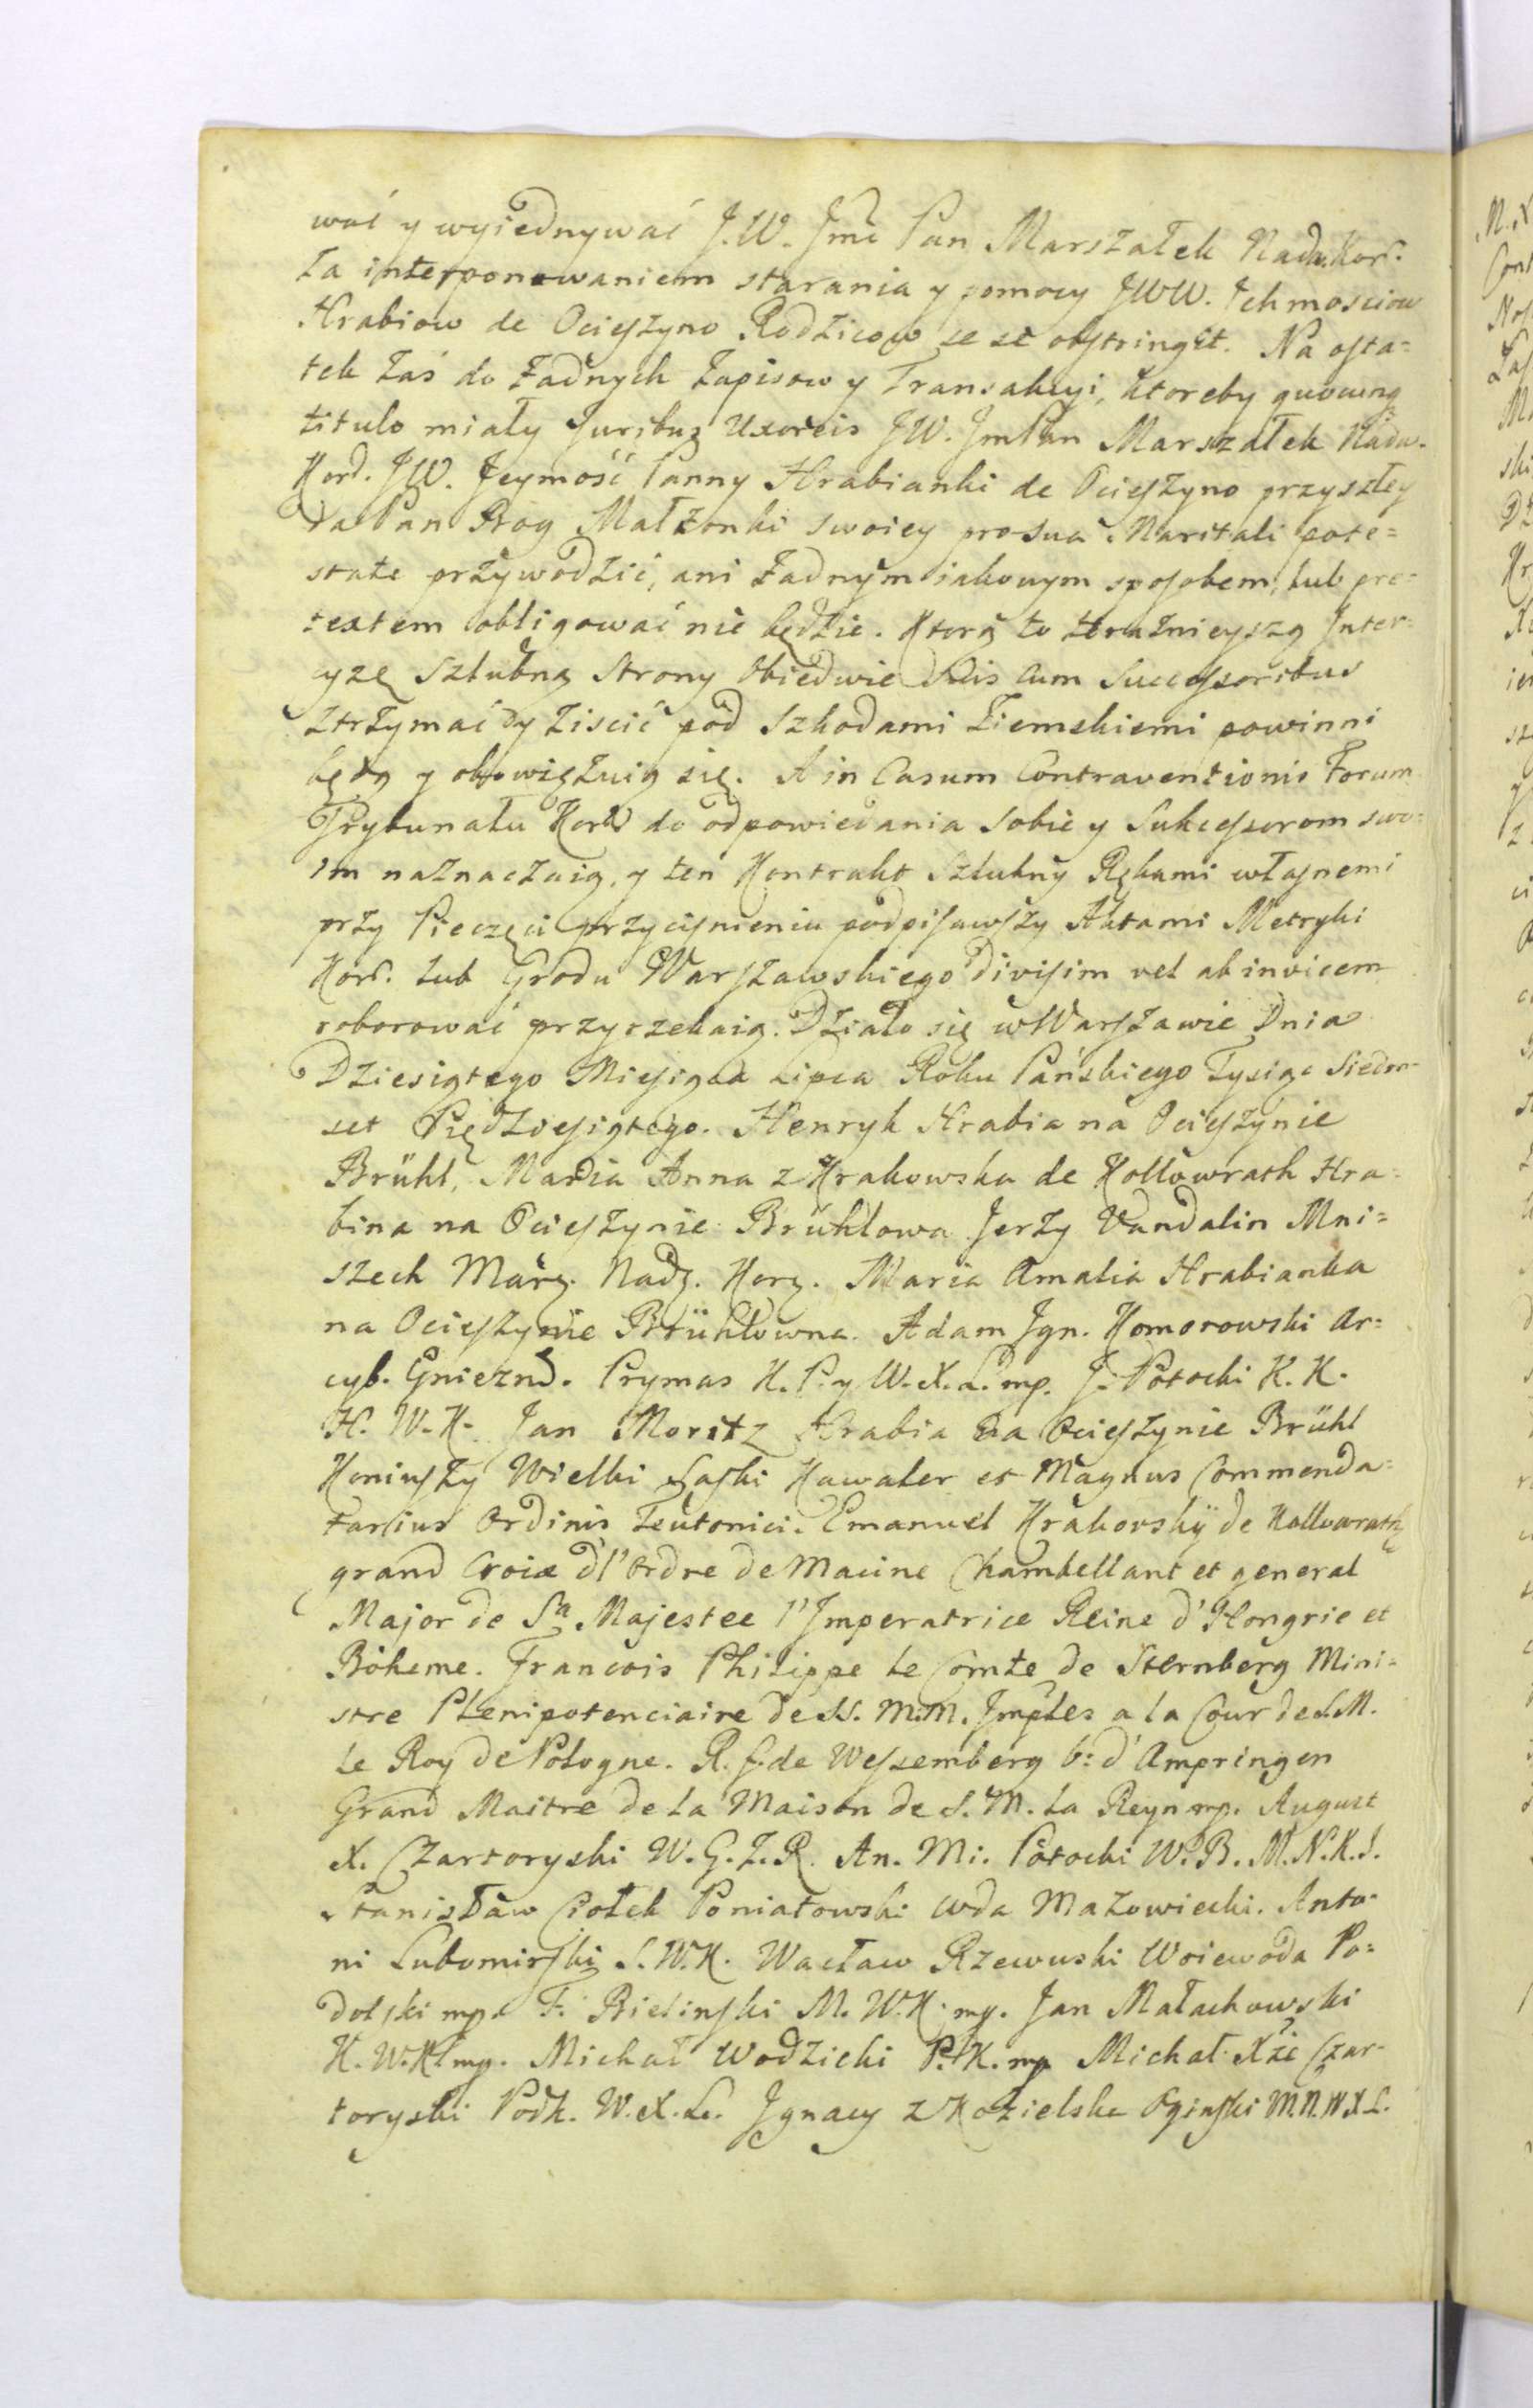 wać y wyiednywać J.W. Jmć Pan Marszałek Nadw. Kor:
za interponowaniem starania y pomocy JWW. Ichmosciow
Hrabiow de Ocieszyno Rodzicow se se obstringit. Na osta=
tek zaś do żadnych Zapisow y Transakcyi, ktoreby quocunq
titulo miały Juribus Uxoreis JW. Jm Pan Marszałek Nadw.
Kord. JW. Jeymość Panny Hrabianki de Ocieszyno przyszłey
da Pan Bog Małżonki swoiey pro sua Maritali pote=
state przywodzić, ani żadnym iakowym sposobem, lub pre=
textem obligować nie będzie. Ktorą to teraznieyszą Inter=
cyzę Szlubną Strony Obiedwie suis cum Successoribus
ztrzymać y ziscić pod Szkodami Ziemskiemi powinni
będą y obowięzuią się. A in Casum Contraventionis Forum
Trybunału Kord do odpowiedania sobie y Sukcessorom swo=
im naznaczaią, y ten Kontrakt Szlubny Rękami własnemi
przy Pieczęci przycisnieniu podpisawszy Aktami Metryki
Kord. lub Grodu Warszawskiego divisim vel ab invicem
roborować przyrzekaią. Działo się w Warszawie Dnia
Dziesiątego Miesiąca Lipca Roku Pańskiego Tysiąc Siedm-
set Pięćdziesiątego. Henryk Hrabia na Ocieszynie
Brühl, Maria Anna z Krakowska de Kollowrath Hra=
bina na Ocieszynie Brühlowa Jerzy Vandalin Mni=
szech Marq. Nadq. Korq. Maria Amalia Hrabianka
na Ocieszynie Brühlowna. Adam Ign. Komorowski Ar=
cyb. Gniezn. Prymas K. P. y W. X. L. mp. J. Potocki K. K.
H. W. K. Jan Moritz Hrabia na Ocieszynie Brühl
Koniuszy Wielki Saski Kawaler et Magnus Commenda=
tarius Ordinis Teutonici. Emanuel Krakovskÿ de Kollowrath
grand Croix dl'Ordre de Macine Chambellant et general
Major de Sa Majestee l'Imperatrice Reine d'Hongrie et
Boheme. Francois Philippe le Comte de Sternberg Mini=
stre Plenipotenciaire de SS. M.M. Imples a la Cour de S.M.
le Roy de Pologne. R. f. de Wessemberg b: d'Ampringen
Grand Maitre de la Maison de S. M. la Reyn mp. August
X. Czartoryski W. G. Z. R. An. Mi. Potocki W. B. M. N. K. S.
Stanisław Ciołek Poniatowski Wda Mazowiecki. Anto-
ni Lubomirski S. W. K. Wacław Rzewuski Woiewoda Po=
dolski mp. F. Bielinski M. W. K. mp. Jan Małachowski
K. W. K. mp. Michał Wodzicki P. K. mp Michał Xże Czar-
toryski Podk. W. X. L. Ignacy z Kozielska Oginski M. N. W X L.